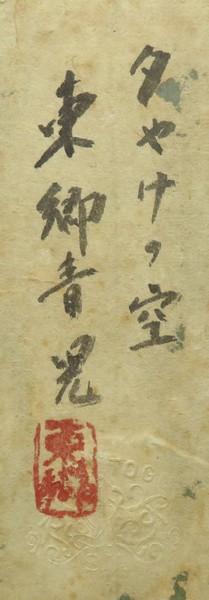 夕やけの空
東郷青児
東郷